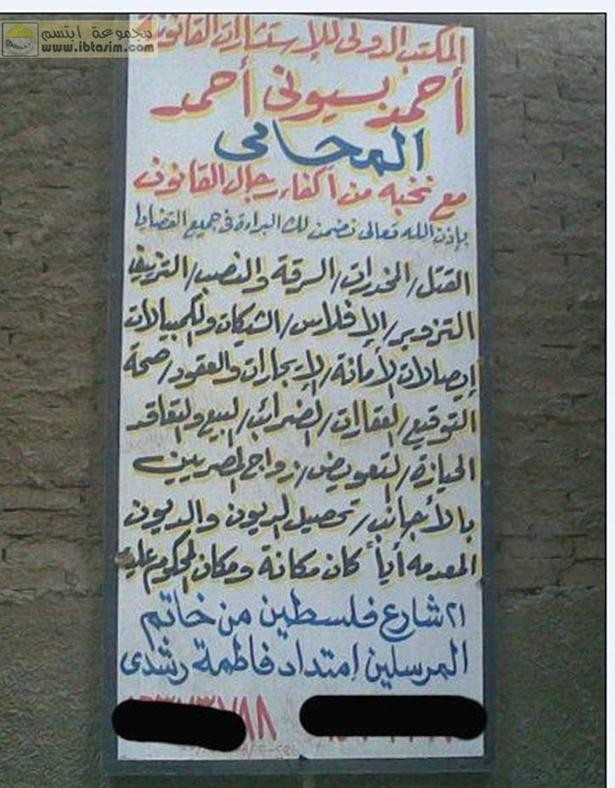 مجموعة ابتسم
www.ibtasim.com
المكتب الدولى للإستشارات القانونية
أحمد بسيونى أحمد
المحامى
مع نخبه من أكفاء رجال القانون
بإذن الله تعالى نضمن لك البراءة فى جميع القضايا
القتل/المخدرات/السرقة والنصب/التزييف
التزوير/الإفلاس/الشيكات والكمبيالات
إيصالات الأمانة/الإيجارات والعقود/صحة
التوقيع/العقارات/الضرائب/البيع والتعاقد
الحيازة/التعويض/زواج المصريين
بالأجانب/تحصيل الديون والديون
المعدمه أياً كان مكانة ومكان المحكوم عليه
٢١ شارع فلسطين من خاتم
المرسلين إمتداد فاطمة رشدى